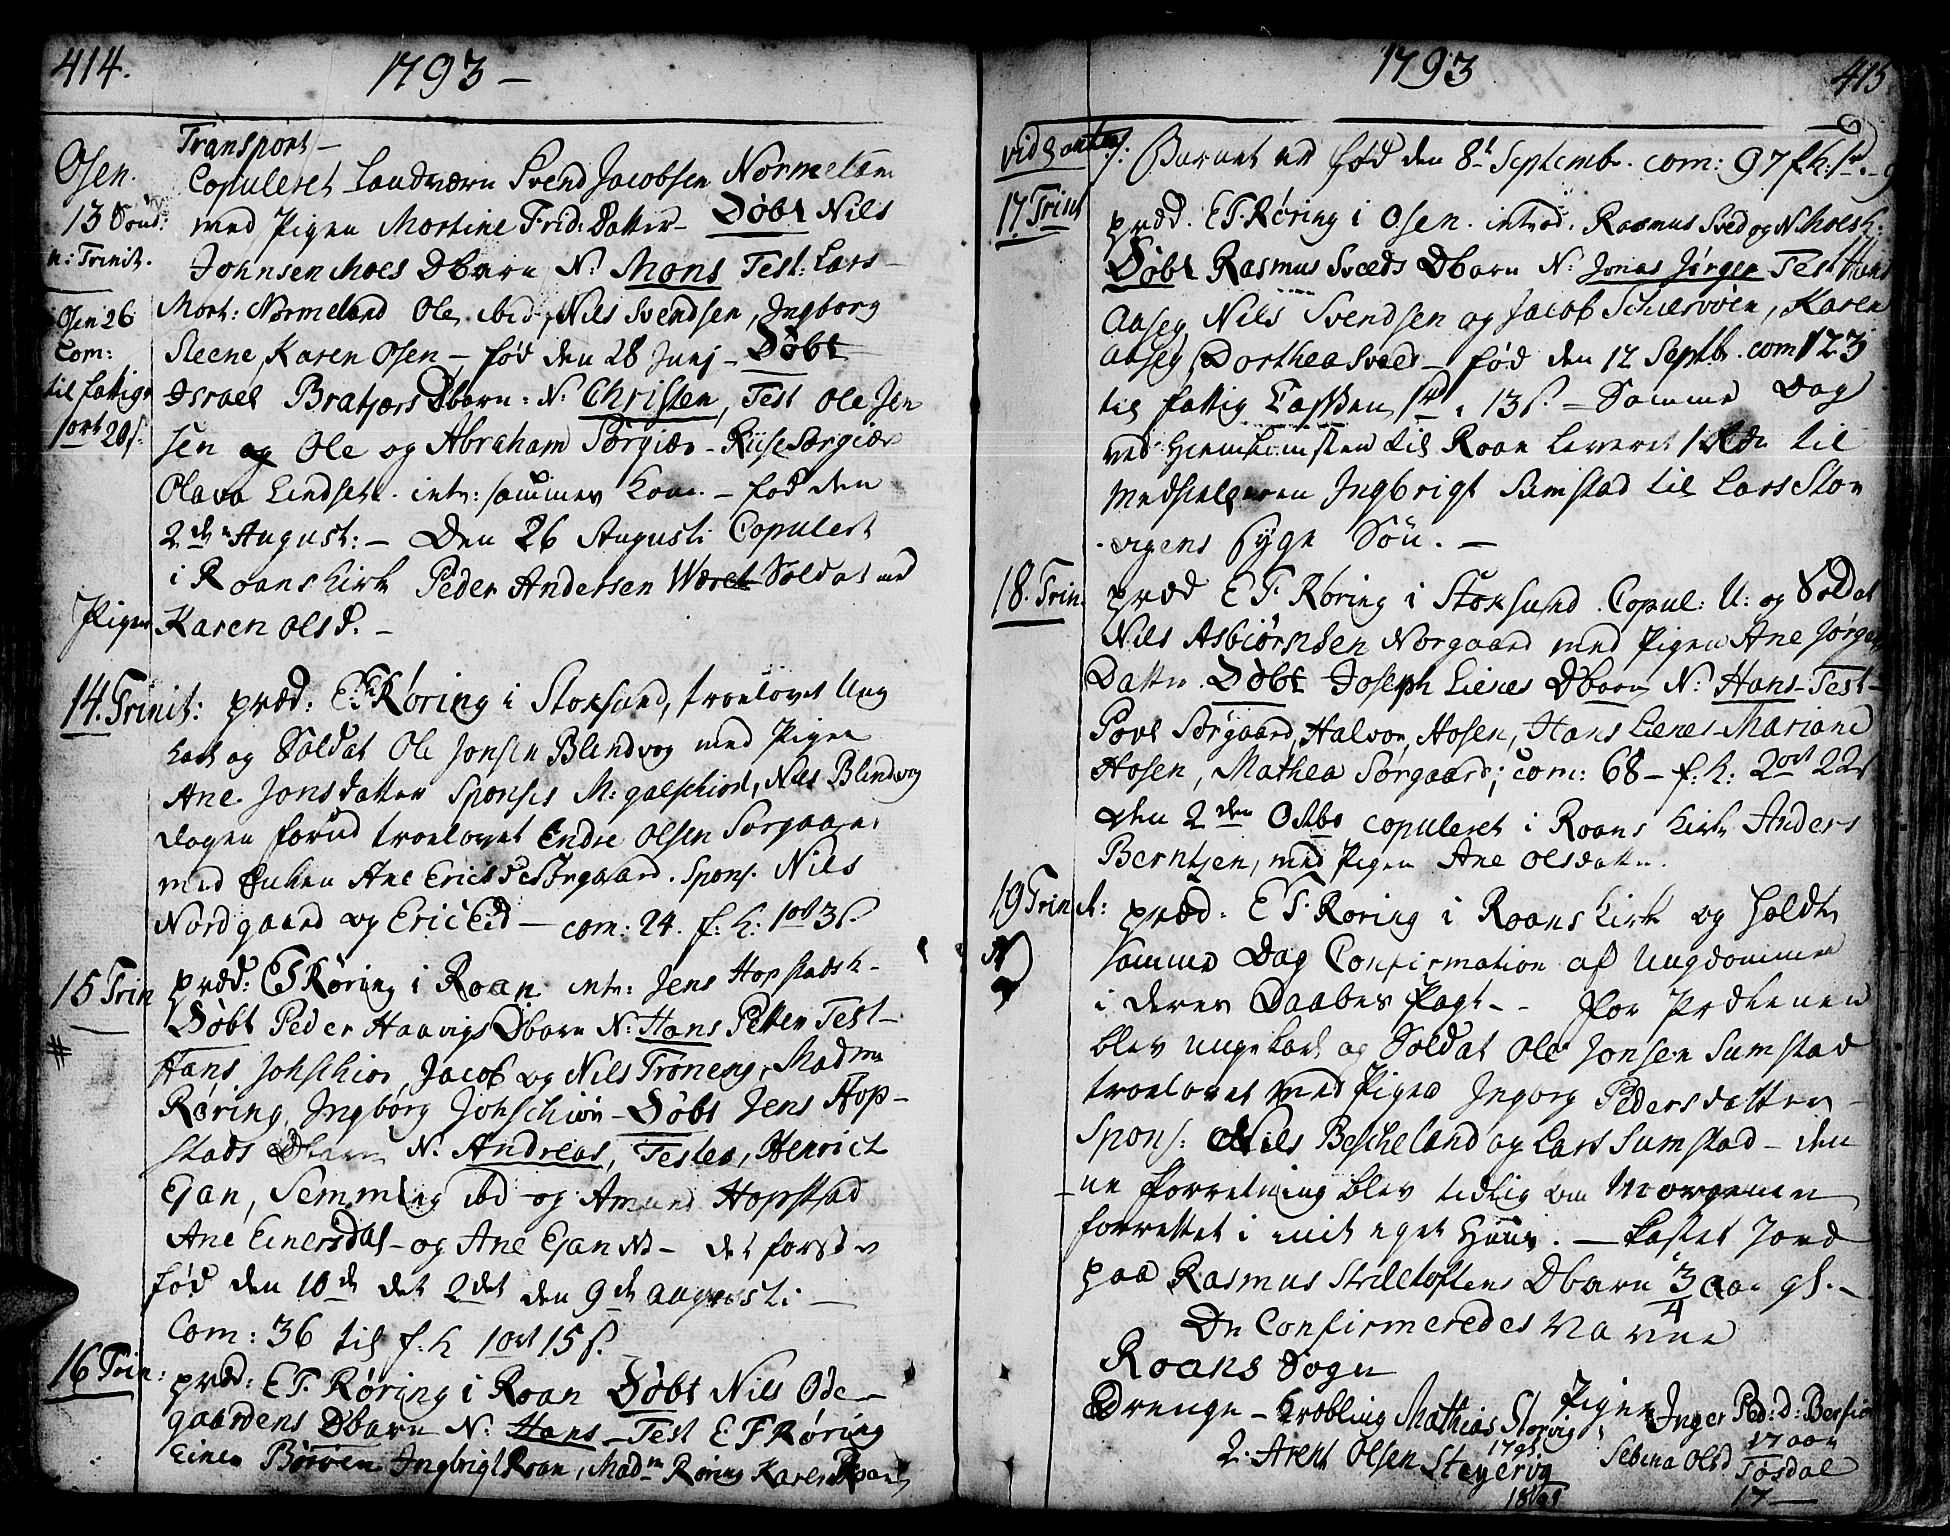 414.
1793 –
Transport –
Osen.
13 Sönd:
n: Trinit.
Copuleret Landværn Svend Jacobsen Normeland
med Pigen Martine Frid: Datter – Döbt Nils
Johnsen Moes Dbarn N: Mons Test: Lars –
Osen 26
Com:
til fattige
1 ort 20 s.
Mort: Normeland Ole ibid, Nils Svendsen, Ingborg
Steene, Karen Osen – fød den 28 Junj – Döbt
Israel Bratjers Dbarn: N: Christen, Test Ole Jen
sen og Ole og Abraham Sørgiær – Riise Sørgiær
Olava Lindset. intr: sammes Kone. – fød den
2den August: – Den 26 Augusti Copulert
i Roans Kirke Peder Andersen Soldat med
Pigen Karen Olsd. –
14. Trinit: præd: E. F. Røring i Stoksund, troelovet Ung
karl og Soldat Ole Jonsen Blindvog med Pigen
Ane Jonsdatter Sponses M: galschiød, Nils Blindvog
dagen forud troelovet Endre Olsen Sørgaard
med Enken Ane Ericsd Sørgaard. Spons. Nils
Nordgaard og Eric Eid – com: 24. f: k: 1 ort 3 s.
15 Trin præd: E F Røring i Roan intr: Jens Hopstads k –
Döbt Peder Haavigs Dbarn N: Hans Petter Test –
#
Hans Johschiør, Jacob og Nils Troneng, Madme
Røring, Ingbørg Johschiør – Döbt Jens Hop –
stads Dbarn N. Andreas, Testes, Henrich
Ejan, Semming ibd – og Amund Hopstad
Ane Einersdal – og Ane Ejan – det første
fød den 10de det 2det den 9de augusti –
Com: 36 til f. k 1 ort 15 s.
16 Trin: præd: E F. Røring i Roan Döbt Nils Ode –
gaardens Dbarn N: Hans – Test E F Røring
Einer Børøen Ingbrigt Roan, Madm Røring Karen Roan
1793
415
Barnet er fød den 8de Septembr. com: 97 f. k:
17. Trinit præd. E F. Røring i Osen. introd. Rasmus Sved og N. Moes k:
Döbt Rasmus Sveeds Dbarn N: Jonas Jørgen Test Hans
Aaseg Nils Svendsen og Jacob Schiervøen, Karen
Aaseg, Dorthea Sveed – fød den 12 Septbr. com 123
til fattig Cassen 13 s. – Samme Dag
ved Hiemkomsten til Roan leveret 1 Rdr til
Medhielperen Ingbrigt Sumstad til Lars Stor
.. egens syge Søn. –
18. Trin. præd E F. Røring i Stoksund. Copul: U: og Soldat
Nils Asbiørnsen Norgaard med Pigen Ane Jørgen
Datter. Döbt Joseph Lienes Dbarn N: Hans – Test –
Povl Sørgaard, Halvor Hosen, Hans Lienes – Mariane
Hosen, Mathea Sørgaard; com: 68 – f. k: 2 ort 22 s
den 2den Octbr copuleret i Roans Kirke Anders
Berntsen, med Pigen Ane Olsdatter.
19 Trinit: præd: E F. Røring i Roans Kirke og holdte
samme Dag Confirmation af Ungdommen
i deres Daabes Pagt – – For Prækenen
blev unge karl og Soldat Ole Jonsen Sumstad
troelovet med Pigen Ingborg Pedersdatter –
Spons: Nils Bescheland og Lars Sumstad – den
ne Forretning blev tidlig om Morgenen
forrettet i mit eget Huus. – Kastet Jord
paa Rasmus Striletoftens Dbarn 3/4 Aar gl. –
De Confirmeredes Navne
Roans Sogn
Drenge – Krøbling Mathias Storvig
17 aar
Pigen Inger Ped: d: Berfiord
17 aar
2. Arent Olsen Steyervig
18 aar
Sebina Olsd Tøsdal
17 –